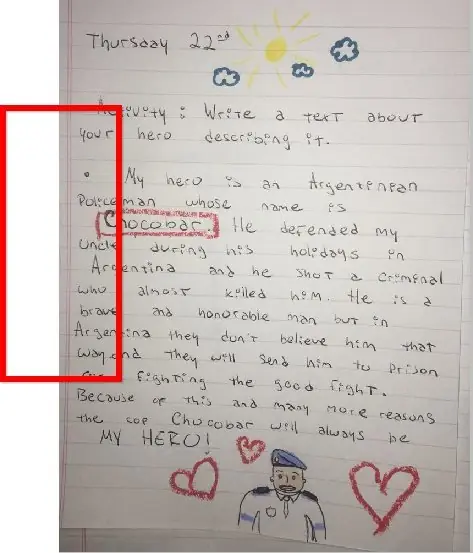 Thursday 22nd
Activity: Write a text about
your hero describing it.
• My hero is an Argentinian
Policeman whose name is
Chocobar. He defended my
uncle during his holidays in
Argentina and he shot a criminal
who almost killed him. He is a
brave and honorable man but in
Argentina they don't believe him that
way and they will send him to prison
for fighting the good fight.
Because of this and many more reasons
the cop Chocobar will always be
MY HERO!